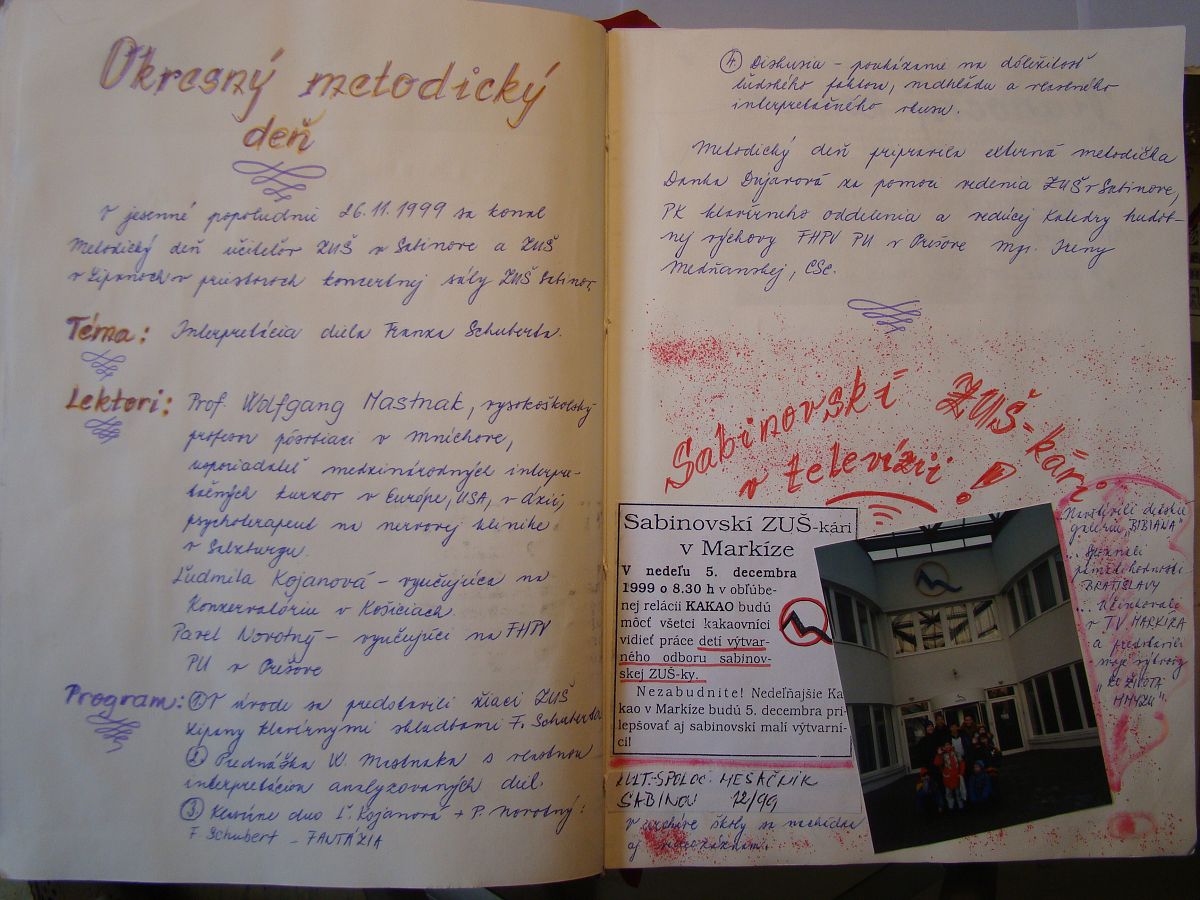 Okresný metodický
deň
V jesenné popoludnie 26.11.1999 sa konal
Metodický deň učiteľov ZUŠ v Sabinove a ZUŠ
v Lipanoch v priestoroch koncertnej sály ZUŠ Sabinov.
Téma: Interpretácia diela Franza Schuberta.
Lektori: Prof. Wolfgang Mastnak, vysokoškolský
profesor pôsobiaci v Mníchove,
usporiadateľ medzinárodných interpre-
tačných kurzov v Európe, USA, v Ázii,
psychoterapeut na nervovej klinike
v Salzburgu.
Ľudmila Kojanová – vyučujúca na
Konzervatóriu v Košiciach
Pavel Novotný – vyučujúci na FHPV
PU v Prešove
Program: 1. V úvode sa predstavili žiaci ZUŠ
Lipany klavírnymi skladbami F. Schuberta
2. Prednáška W. Mastnaka s vlastnou
interpretáciou analyzovaných diel.
3. Klavírne duo Ľ. Kojanová + P. Novotný:
F. Schubert – FANTÁZIA
4. Diskusia – poukázanie na dôležitosť
ľudského faktoru, nadhľadu a vlastného
interpretačného vkusu.
Metodický deň pripravila externá metodička
Danka Dujavová za pomoci vedenia ZUŠ v Sabinove,
PK klavírneho oddelenia a vedúcej Katedry hudob-
nej výchovy FHPV PU v Prešove Mgr. Ireny
Medňanskej, CSc.
Sabinovskí ZUŠ-kári
v televízii!
Sabinovskí ZUŠ-kári
v Markíze
V nedeľu 5. decembra
1999 o 8.30 h v obľúbe-
nej relácii KAKAO budú
môcť všetci kakaovníci
vidieť práce detí výtvar-
ného odboru sabinov-
skej ZUŠ-ky.
Nezabudnite! Nedeľňajšie Ka
kao v Markíze budú 5. decembra pri-
lepšovať aj sabinovskí malí výtvarní-
ci!
KULT.-SPOLOČ. MESAČNÍK
SABINOV 12/99
v archíve školy sa nachádza
aj videozáznam.
„Navštívili detskú
galériu „BIBIANA"
... Spoznali
pamätihodnosti
BRATISLAVY
... Účinkovali
v TV MARKÍZA
a predstavili
svoje výtvory
„ZO ŽIVOTA
HMYZU".